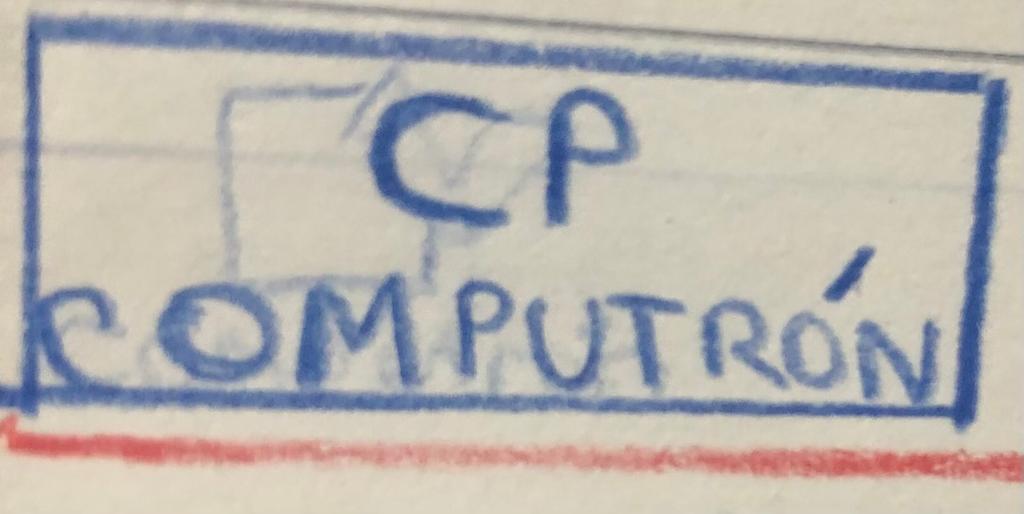 CP
COMPUTRÓN